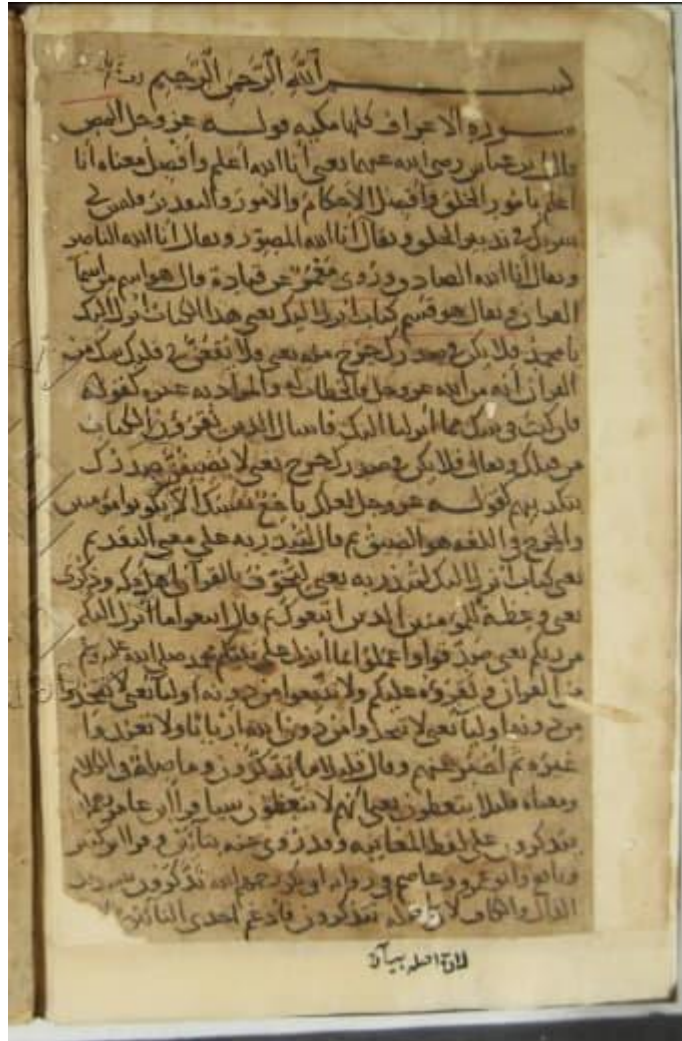 بسم الله الرحمن الرحيم
سورة الاعراف كلها مكيه قولـه عز وجل المص
قال ابن عباس رضي الله عنهما يعني أنا الله أعلم وأفصل معناه أنا
اعلم بامور الخلق وافصل الأحكام والأمور والتقدير وليس لي
شريك في تدبير الخلق ويقال أنا الله المصور ويقال أنا الله الناصر
ويقال أنا الله الصادق وروى معمر عن قتادة قال هو اسم من اسما
القران ويقال هو قسم كتاب أنزل اليك يعني هذا الكتاب أنزل اليك
يا محمد فلا يكن في صدرك حرج منه يعني فلا يقعن في قلبك شك من
القران أنه من الله عز وجل والخطاب له والمراد به غيره كقوله
فان كنت في شك مما أنزلنا اليك فاسال الذين يقرؤن الكتاب
من قبلك ويقال فلا يكن في صدرك حرج يعني لا يضيقن صدرك
بتكذيبهم كقولـه عز وجل لعلك باخع نفسك ألا يكونوا مؤمنين
والحرج في اللغه هو الضيق ثم قال لتنذر به على معنى التقديم
يعني كتاب أنزل اليك لتنذر به يعني لتخوف بالقرآن أهل مكه وذكرى
يعني وعظة للمؤمنين الذين اتبعوك ثم قال اتبعوا ما أنزل اليكم
من ربكم يعني صدقوا واعملوا بما أنزل على نبيكم محمد صلى الله عليه وسلم
من القران ويقرؤه عليكم ولا تتبعوا من دونه أوليا يعني لا تتخذوا
من دونه أوليا يعني لا تتخذوا من دون الله أربابا ولا تعبدوا
غيره ثم أخبر عنهم وقال قليلا ما تذكرون وما صلة في الكلام
ومعناه قليلا يتعظون يعني أنهم لا يتعظون شيا قرا ابن عامر
يتذكرون على لفظ المغايبه وقد روي عنه بتائين وقرا ابن كثير
ونافع وابو عمرو وعاصم في رواية ابو بكر رحمهم الله تذكرون بتشديد
الذال والكاف لان أصله تتذكرون فادغم احدى التائين
لان اصله بيان